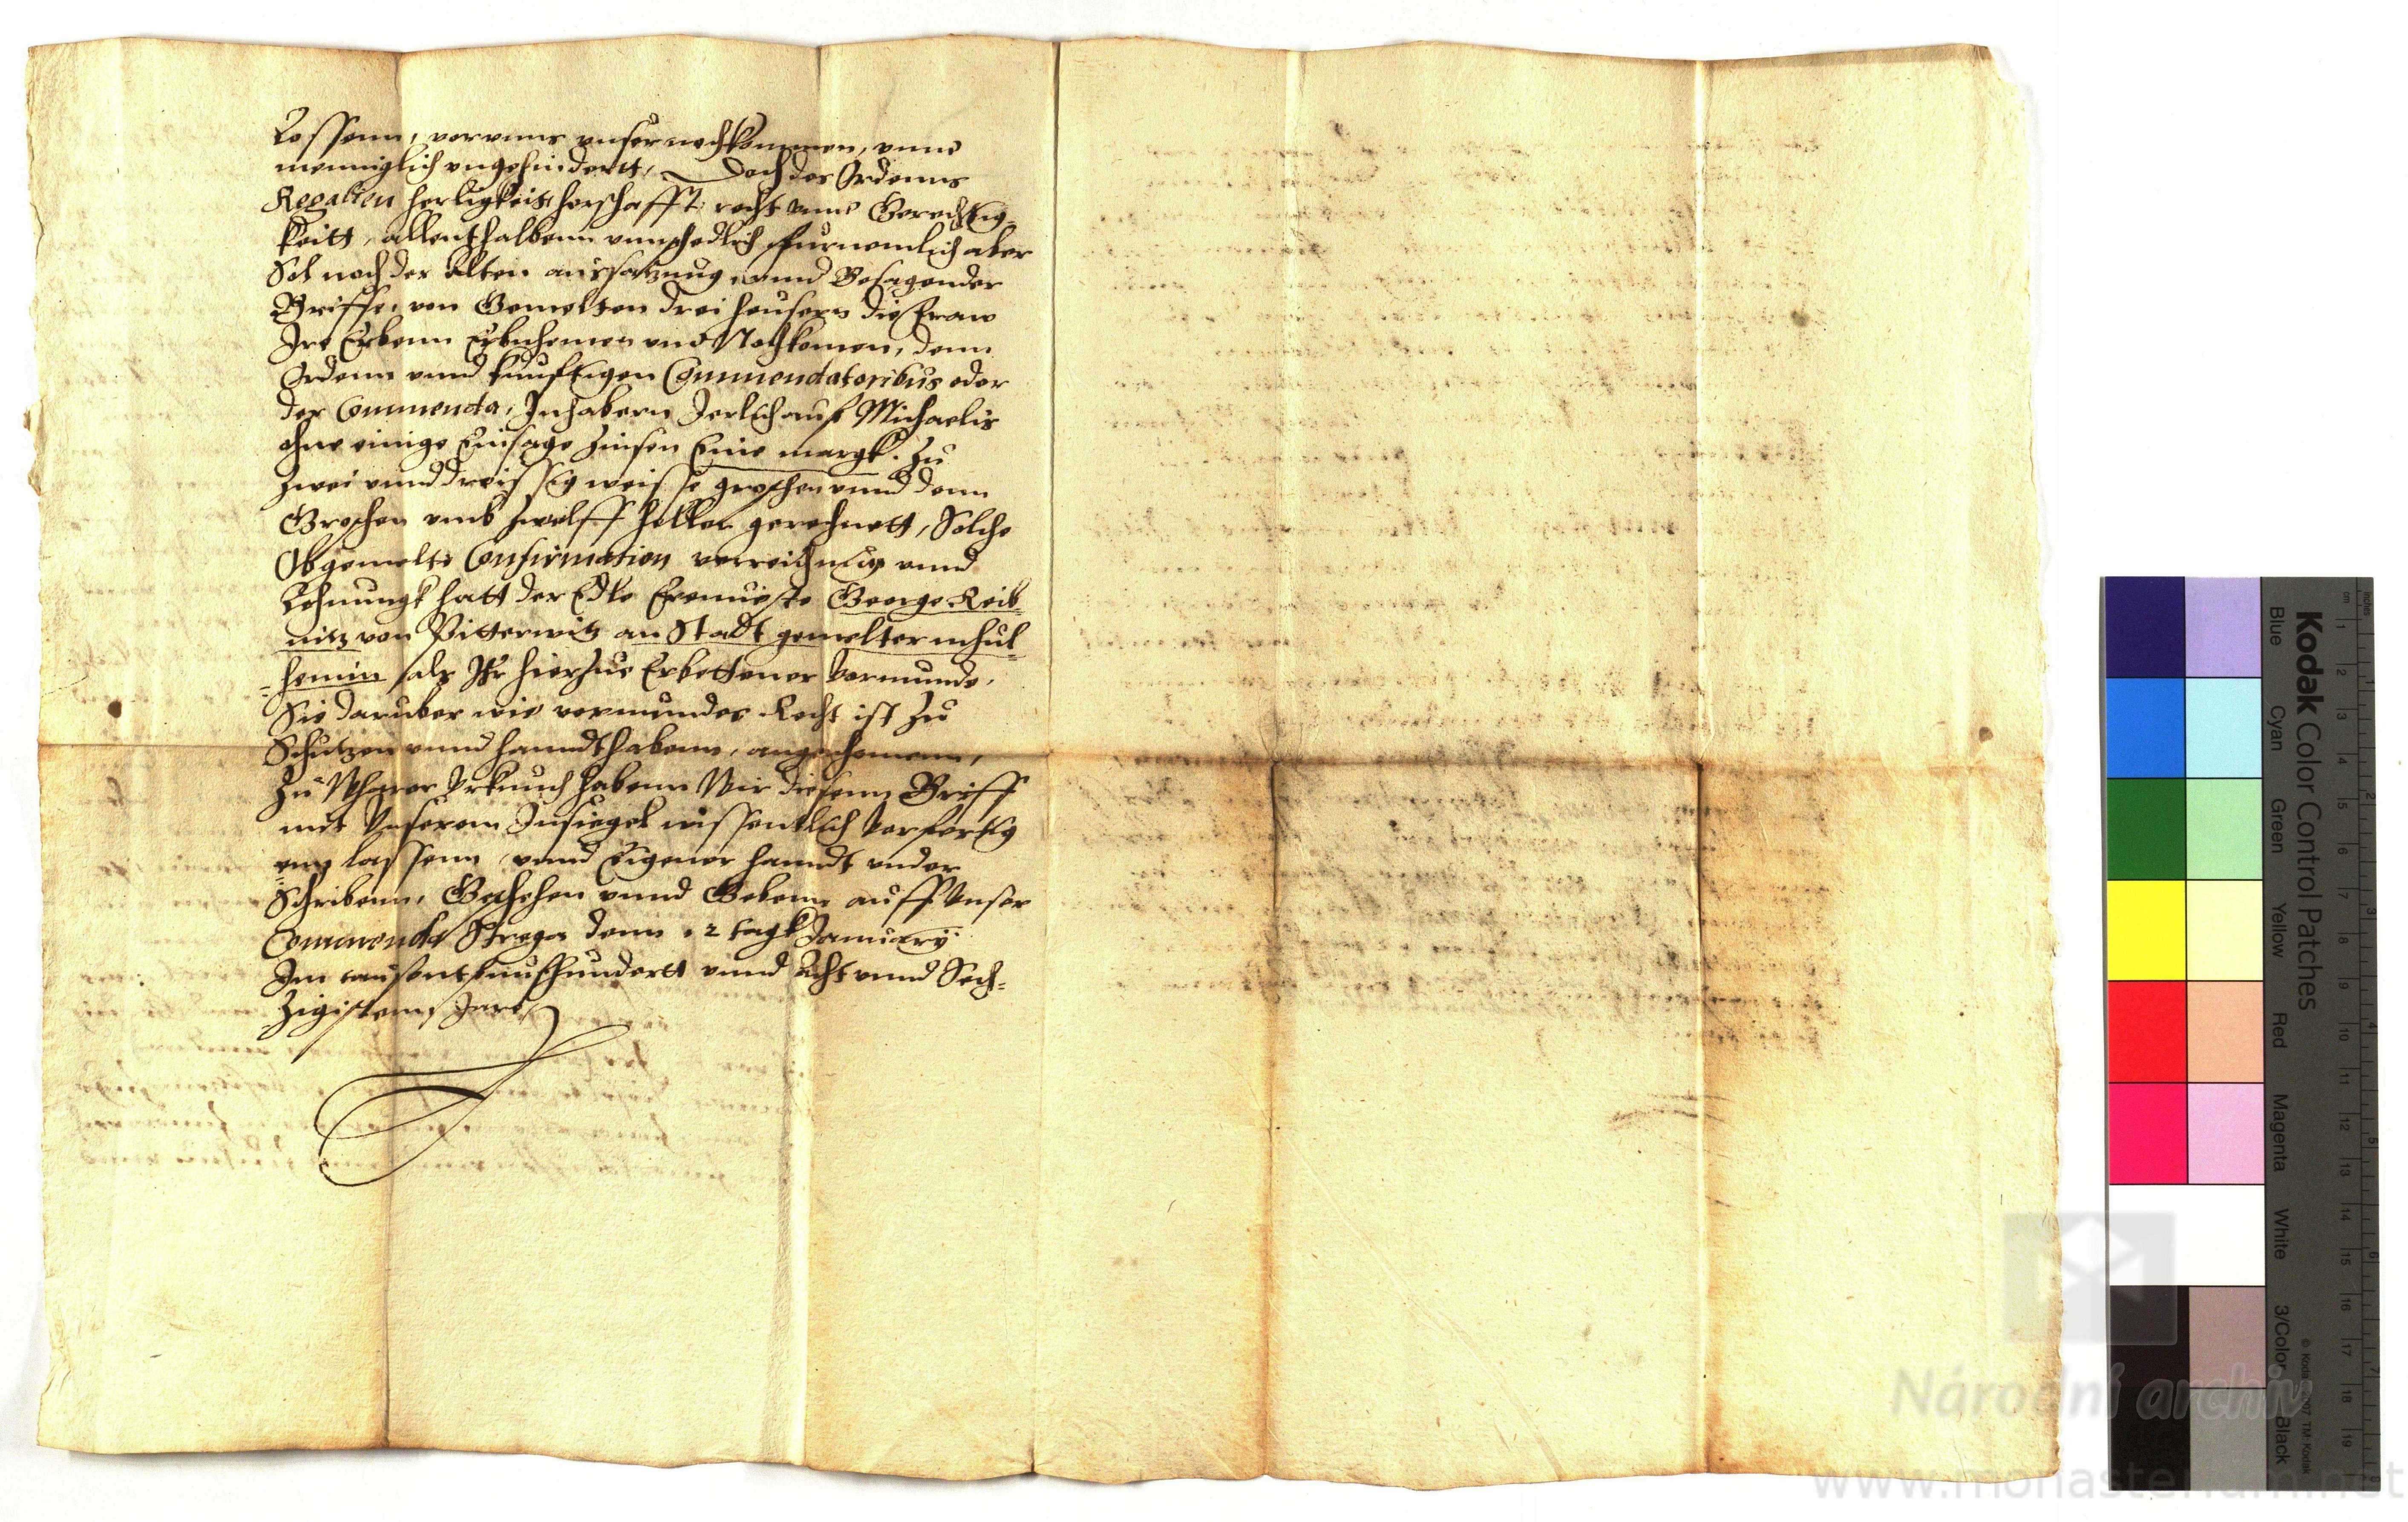 Lossenn, vor vnns vnser nochkommen, vnnd
menniglich vngehindertt, Doch des Ordenns
Regalien herligkeitt herschafft recht vnnd Gerechtig-
keitt, allenthalbenn vnnschedlich furnemlich aber
Sol noch der Alten aussatzung, vnnd Besagender
Briffe, von Gemelten drei heusern die Fraw
Ire Erbenn Erbnhemer vnd Nochkomen, denn
Ordenn vnnd kunfftigen Commendatoribus oder
der Commenda, Inhabern Jerlich auf Michaelis
ohne einige Einsage Zinsen Eine margk. Zu
Zwei vnnd dreissig weisse groschen vnnd denn
Groschen vmb Zwelff heller gerechnett, Solche
Obgemelte Confirmation vorreichung vnnd
Lehnungk hatt der Edle Erenueste George Reib-
nitz von Pitterwitz an Stadt gemelter mhul-
=hemin als Ihr hierzue Erbettener Vormunde,
Sie daruber wie vormundes Recht ist Zu
Schutzen vnnd hanndthabenn, angenhomenn,
Zu Whaer Vrkunth habenn Wir diesenn Briff
mit Vnserem Insiegel wissentlich Verfertig
enn lassenn, vnnd Eigener hanndt vnder
Schribenn, Geschehen vnnd Gebenn auff Vnser
Commenda Strega denn .2 tagk January
Im tausent funfhundertt vnnd Acht vnnd Sech-
Zigistenn Jare
Kodak Color Control Patches
Blue Cyan Green Yellow Red Magenta White 3/Color Black
Národní archiv
www.monasterium.net